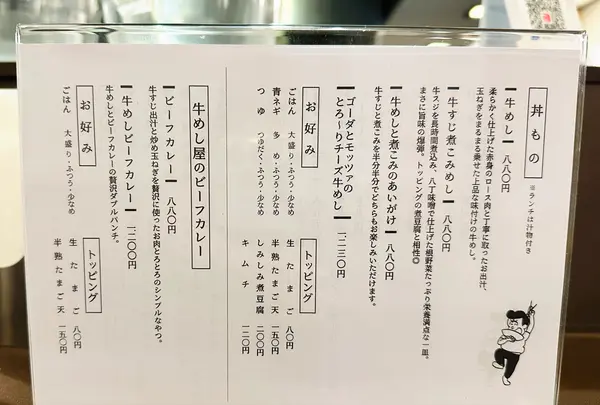 丼もの
※ランチは汁物付き
牛めし 八八〇円
柔らかく仕上げた赤身のロース肉と丁寧に取ったお出汁、
玉ねぎをまるまる乗せた上品な味付けの牛めし。
牛すじ煮こみめし 八八〇円
牛スジを長時間煮込み、八丁味噌で仕上げた根野菜たっぷり栄養満点な一皿。
まさに旨味の爆弾。トッピングの煮豆腐と相性◎
牛めしと煮こみのあいがけ 八八〇円
牛すじと煮こみを半分半分でどちらもお楽しみいただけます。
ゴーダとモッツァの
とろ〜りチーズ牛めし 一、二三〇円
お好み
ごはん 大盛り・ふつう・少なめ
青ネギ 多め・ふつう・少なめ
つゆ つゆだく・ふつう・少なめ
トッピング
生たまご 八〇円
半熟たまご天 一五〇円
しみしみ煮豆腐 二〇〇円
キムチ 一二〇円
牛めし屋のビーフカレー
ビーフカレー 八八〇円
牛すじ出汁と炒め玉ねぎを贅沢に使ったお肉とろとろのシンプルなやつ。
牛めしビーフカレー 一、二〇〇円
牛めしとビーフカレーの贅沢ダブルパンチ。
お好み
ごはん 大盛り・ふつう・少なめ
トッピング
生たまご 八〇円
半熟たまご天 一五〇円